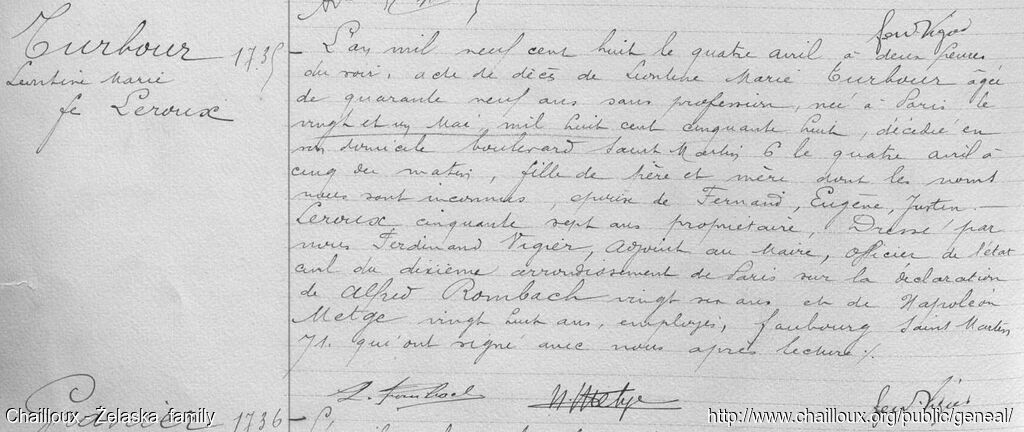 Turbour 1735
Leontine Marie
fe Leroux
L'an mil neuf cent huit le quatre avril à deux heures
du soir, acte de décès de Leontine Marie Turbour âgée
de quarante neuf ans sans profession, née à Paris le
vingt et un Mai mil huit cent cinquante huit, décédée en
son domicile boulevard Saint Martin 6 le quatre avril à
cinq du matin, fille de père et mère dont les noms
nous sont inconnus, épouse de Fernand, Eugène, Justin
Leroux cinquante sept ans propriétaire, Dressé par
nous Ferdinand Vigier, adjoint au Maire, officier de l'état
civil du dixième arrondissement de Paris sur la déclaration
de Alfred Rombach vingt six ans et de Napoléon
Metge vingt huit ans, employés, faubourg Saint Martin
71. qui ont signé avec nous après lecture ./.
N. Metge
1736
Chailloux - Żelaska family
http://www.chailloux.org/public/geneal/